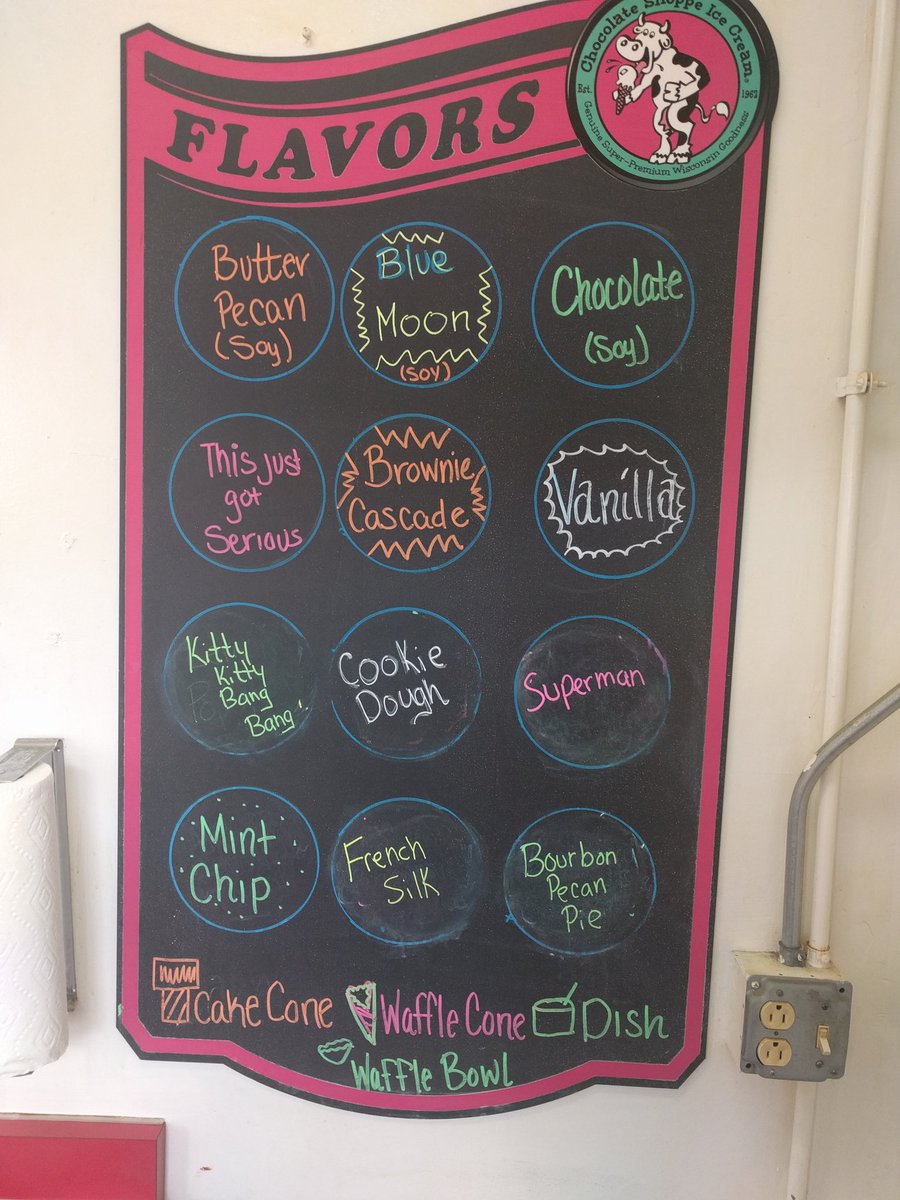 Chocolate Shoppe Ice Cream®
Est. 1962
Genuine Super-Premium Wisconsin Goodness
FLAVORS
Butter
Pecan
(Soy)
Blue
Moon
(SOY)
Chocolate
(Soy)
This just
got
Serious
Brownie
Cascade
Vanilla
Kitty
Kitty
Bang
Bang!
Cookie
Dough
Superman
Mint
Chip
French
Silk
Bourbon
Pecan
Pie
Cake Cone
Waffle Cone
Dish
Waffle Bowl